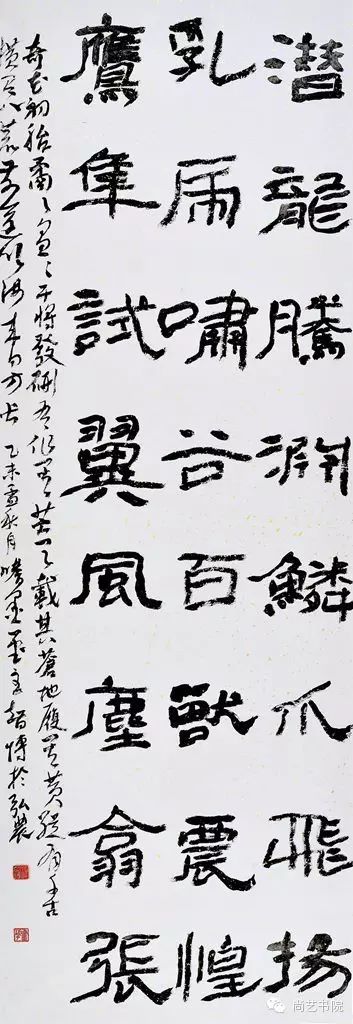 潜龍騰淵鱗爪飛揚
乳虎嘯谷百獸震惶
鷹隼試翼風塵翕張
奇花初胎矞〻皇〻干將發硎有作其芒天戴其蒼地履其黃縱有千古
橫有八荒前途似海來日方長 乙未 秋月 於弘農
尚艺书院